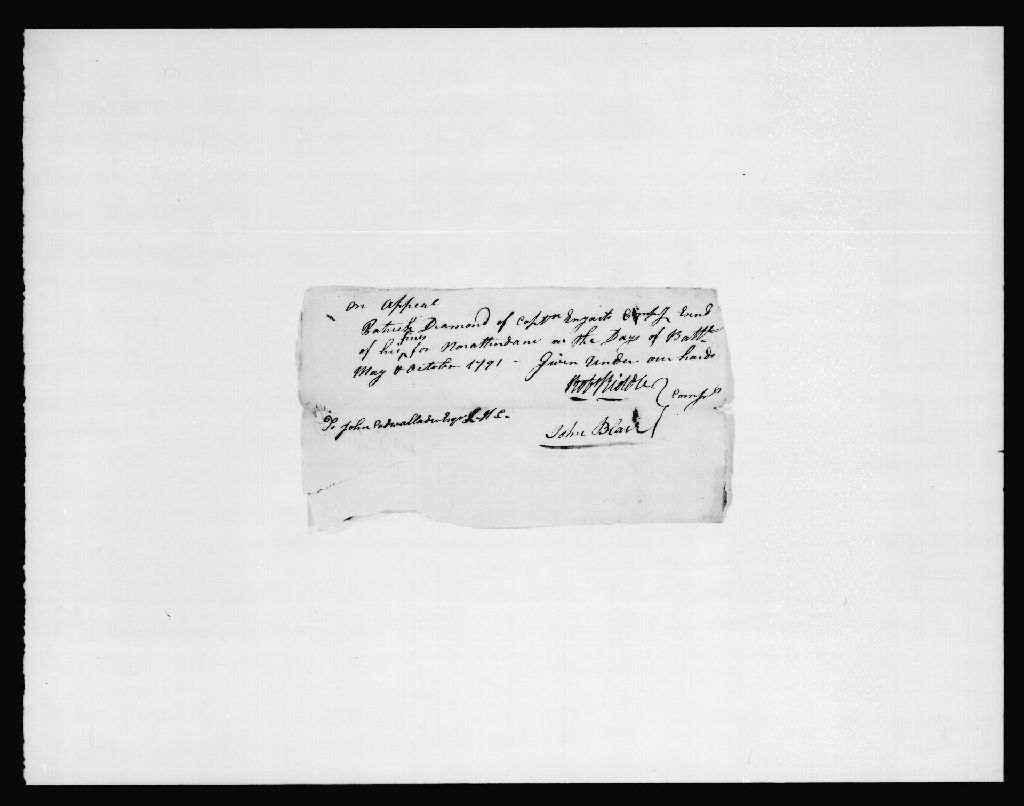 On Appeal
Patrick Diamond of Captn Enyart Compy
of his fines for Nonattendanc on the Days of Battn
May & October 1791 - Given Under our hands
Robt Riddle
John Blair
To John Cadwallader Esqr